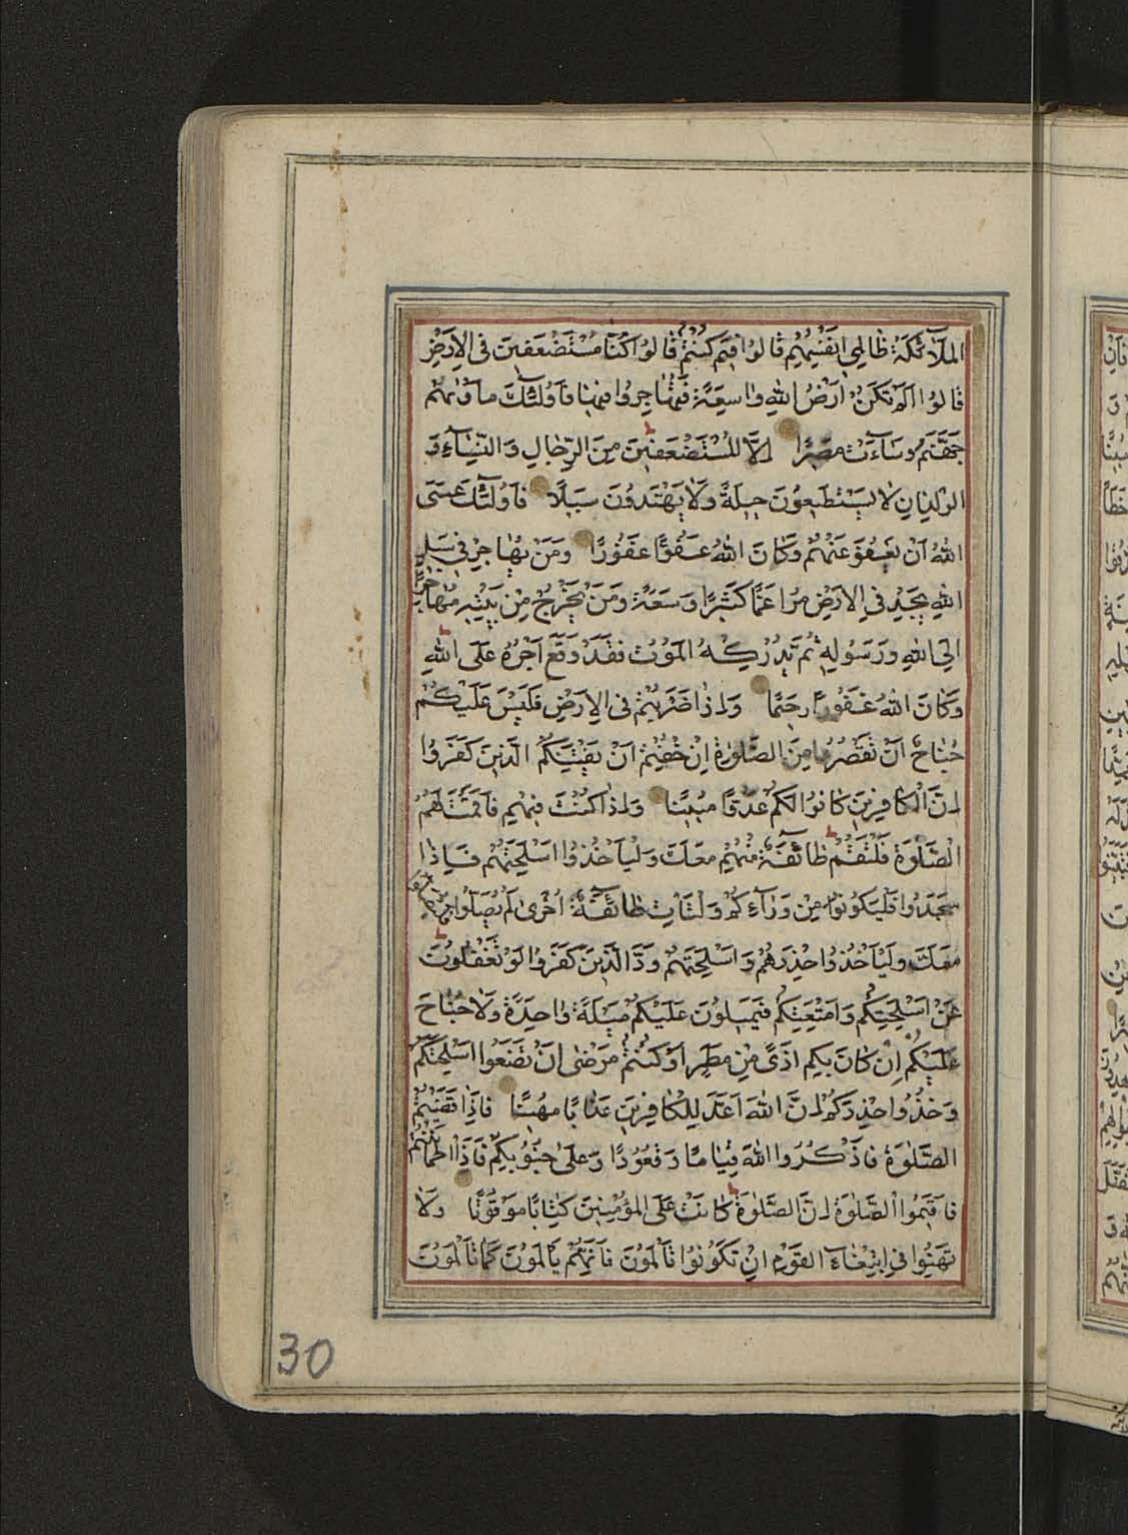 الملآئكة ظالمي انفسهم قالوا فيم كنتم قالوا كنا مستضعفين فى الارض
قالوا الم تكن ارض الله واسعة فتهاجروا فيها فاولئك ماويهم
جهنم وساءت مصيرا الا المستضعفين من الرجال والنساء و
الولدان لا يستطيعون حيلة ولا يهتدون سبيلا فاولئك عسى
الله ان يعفو عنهم وكان الله عفوا غفورا ومن يهاجر في سبيل
الله يجد في الارض مراغما كثيرا وسعة ومن يخرج من بيته مهاجرا
الى الله ورسوله ثم يدركه الموت فقد وقع اجره على الله
وكان الله غفورا رحيما واذا ضربتم فى الارض فليس عليكم
جناح ان تقصروا من الصلوة ان خفتم ان يفتنكم الذين كفروا
ان الكافرين كانوا لكم عدوا مبينا واذا كنت فيهم فاقمت لهم
الصلوة فلتقم طائفة منهم معك ولياخذوا اسلحتهم فاذا
سجدوا فليكونوا من ورآءكم ولتات طائفة اخرى لم يصلوا فليصلوا
معك ولياخذوا حذرهم واسلحتهم ود الذين كفروا لو تغفلون
عن اسلحتكم وامتعتكم فيميلون عليكم ميلة واحدة ولا جناح
عليكم ان كان بكم اذى من مطر او كنتم مرضى ان تضعوا اسلحتكم
وخذوا حذركم ان الله اعد للكافرين عذابا مهينا فاذا قضيتم
الصلوة فاذكروا الله قياما وقعودا وعلى جنوبكم فاذا اطماننتم
فاقيموا الصلوة ان الصلوة كانت على المؤمنين كتابا موقوتا ولا
تهنوا في ابتغاء القوم ان تكونوا تالمون فانهم يالمون كما تالمون
30